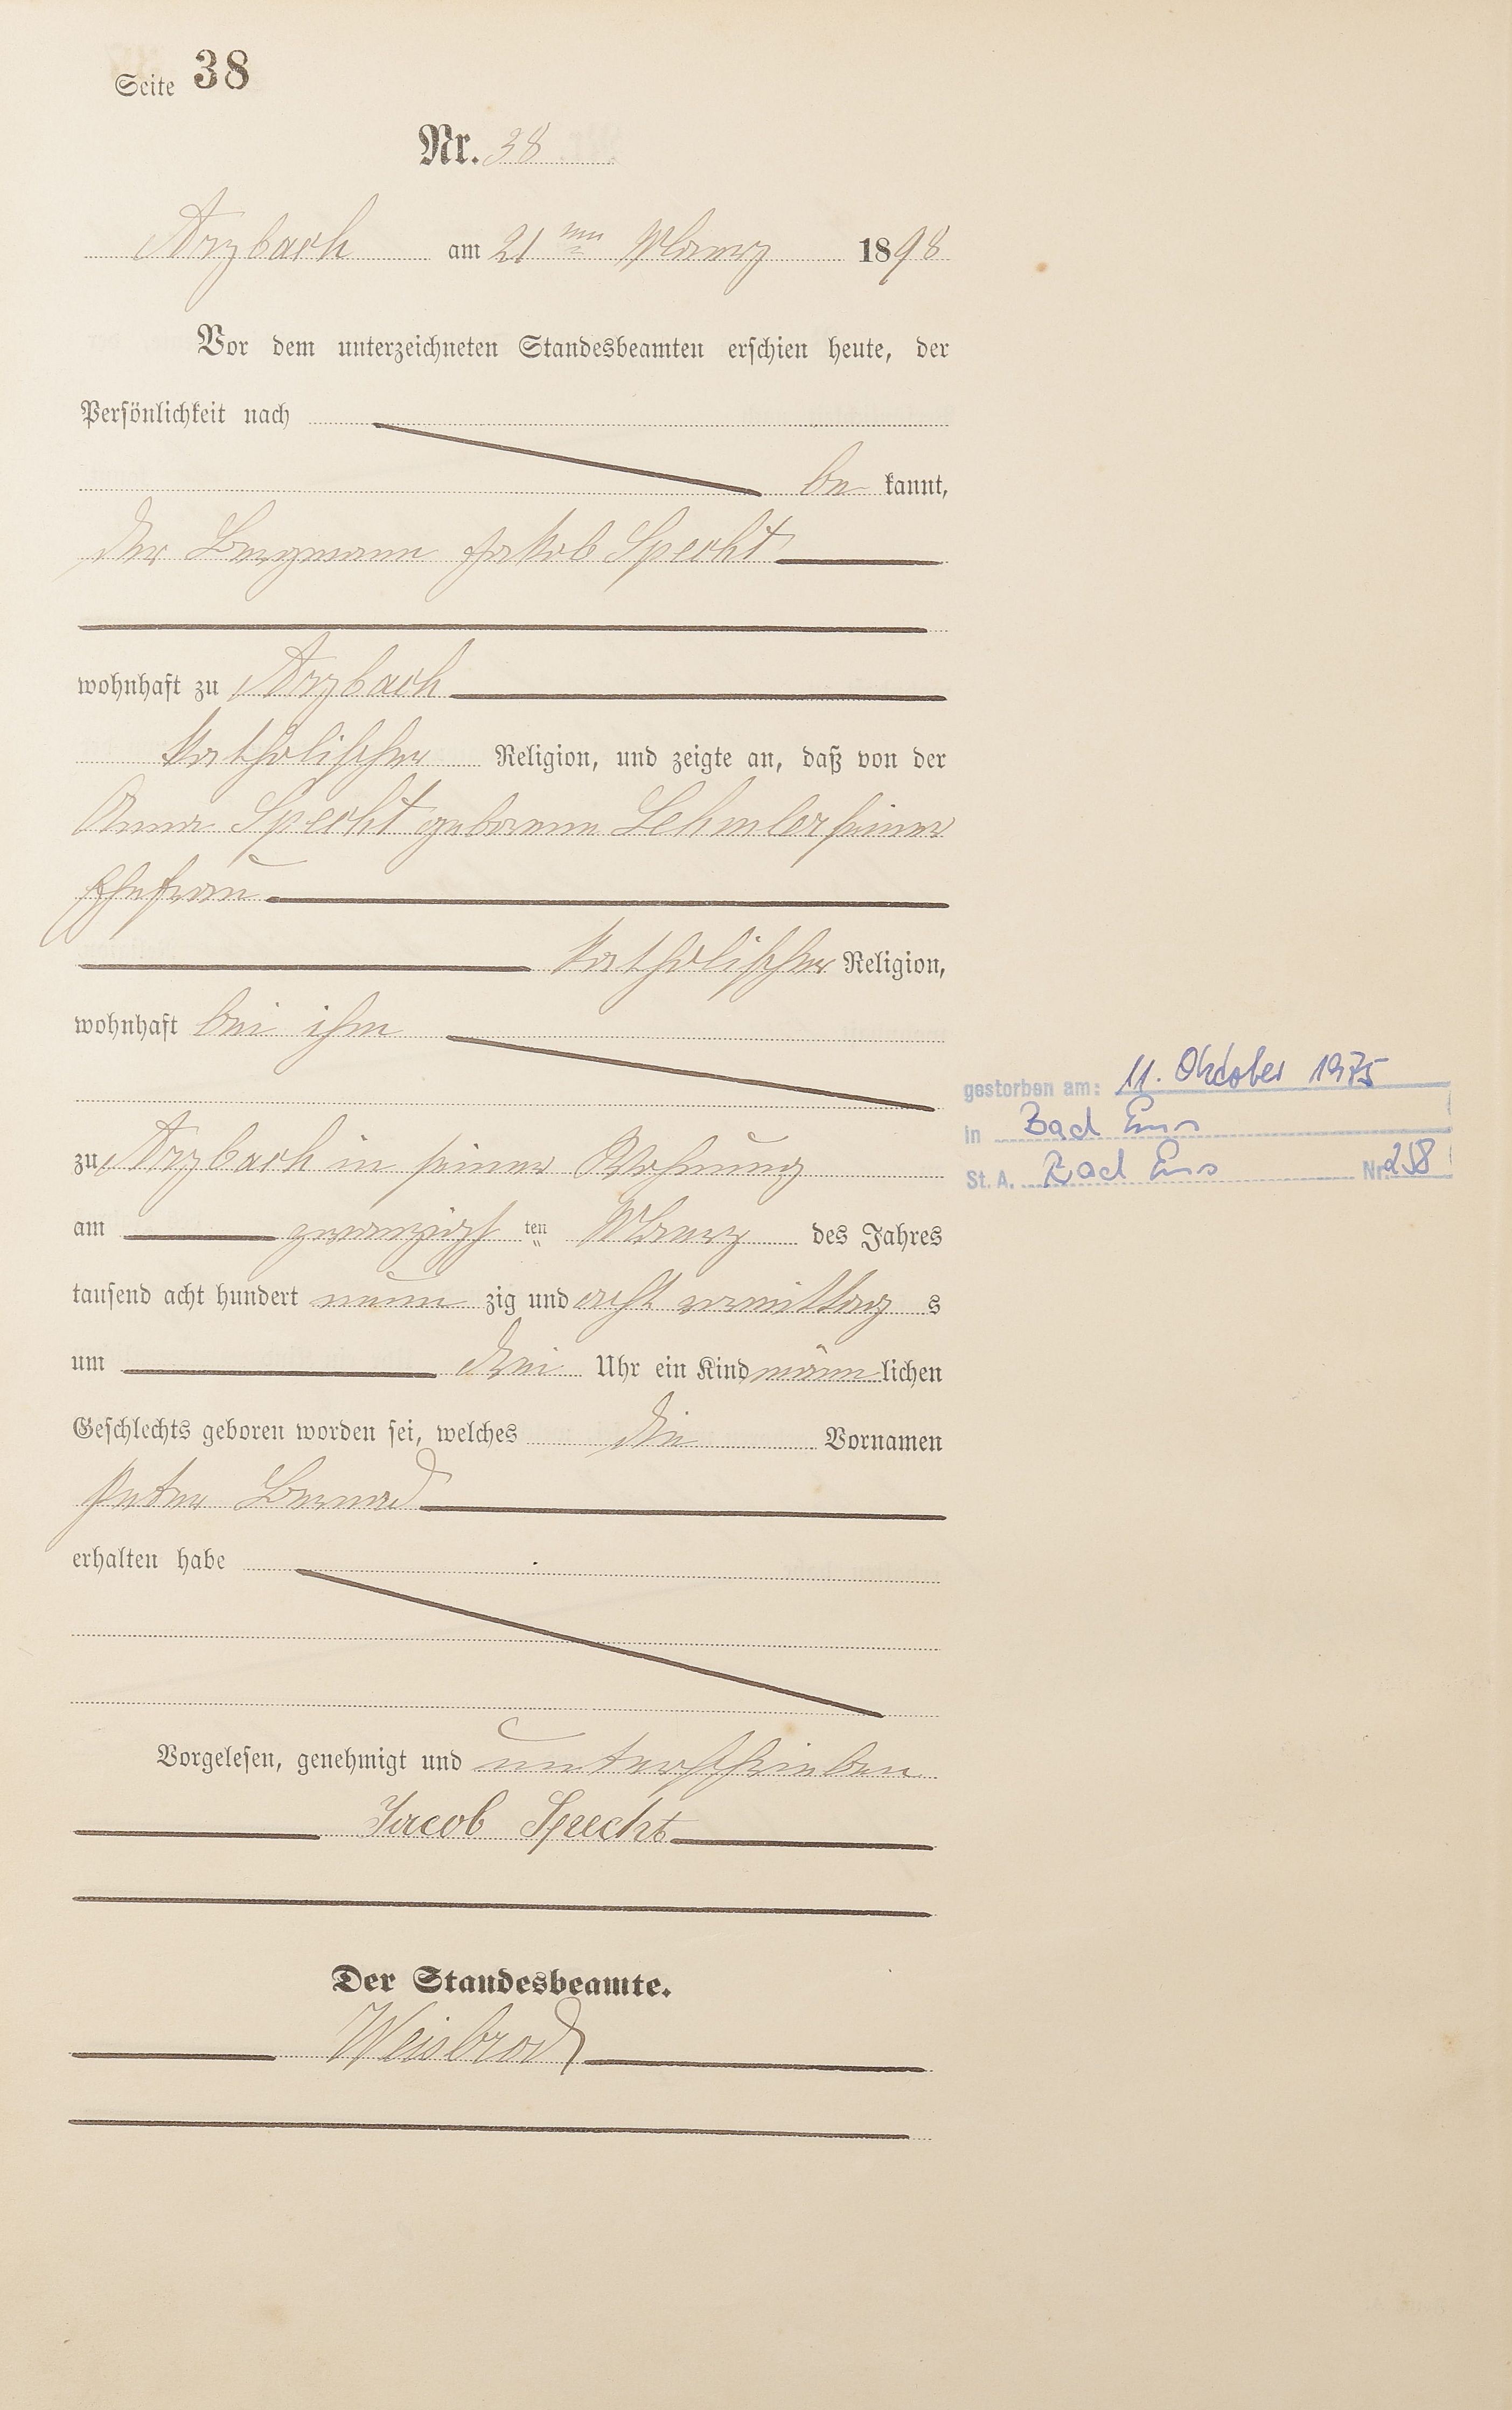 Seite 38
Nr. 38
Arzbach am 21ten Maerz 1898
Vor dem unterzeichneten Standesbeamten erschien heute, der
Persönlichkeit nach
be kannt,
der Bergmann Jakob Specht
wohnhaft zu Arzbach
katholischer Religion, und zeigte an, daß von der
Anna Specht geborene Lehmler seiner
Ehefrau
katholischer Religion,
wohnhaft bei ihm
zu Arzbach in seiner Wohnung
am zwanzigsten Maerz des Jahres
tausend acht hundert neun zig und acht vormittag s
um drei Uhr ein Kind männ lichen
Geschlechts geboren worden sei, welches die Vornamen
Peter Bernard
erhalten habe
Vorgelesen, genehmigt und unterschrieben
Jacob Specht
Der Standesbeamte.
Weisbrod
gestorben am: 11. Oktober 1975
in Bad Ems
St. A. Bad Ems Nr. 258